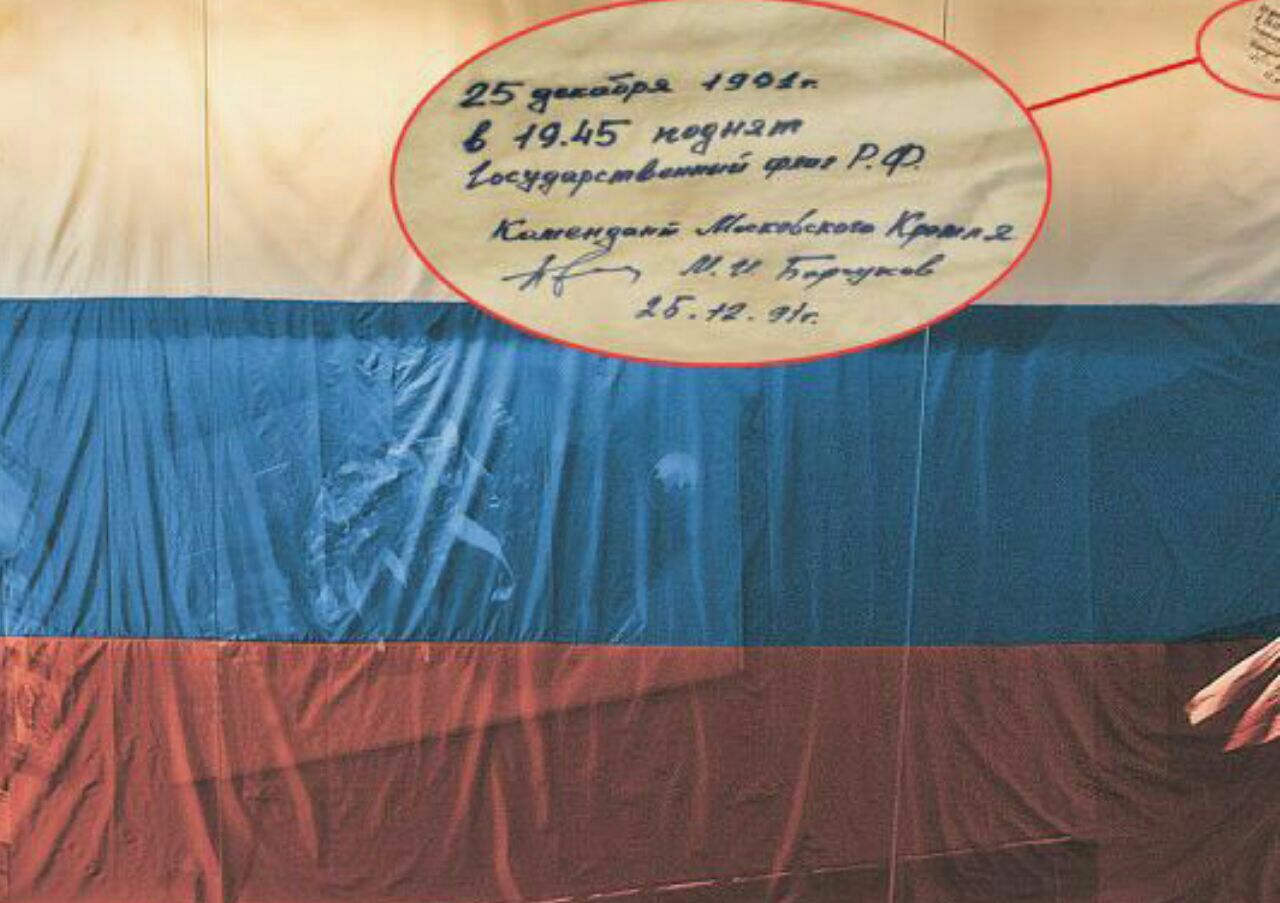 25 декабря 1991г.
в 19.45 поднят
Государственный флаг Р.Ф.
Комендант Московского Кремля
М. И. Барсуков
25.12.91г.